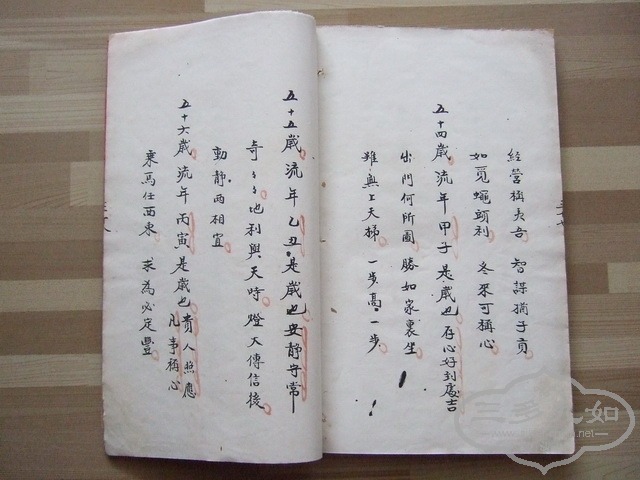 經營稱夫吾 智謀猶子貢
如覓蠅頭利 冬來可稱心
五十四歲流年甲子是歲也存心好到處吉
出門何所圖 勝如家裏坐
雖無上天梯 一步高一步
五十五歲流年乙丑是歲也安靜守常
奇々地利與天時 燈火傳信後
動靜兩相宜
五十六歲流年丙寅是歲也貴人照應凡事稱心
乘馬任西東 求為必定豐
三多九如